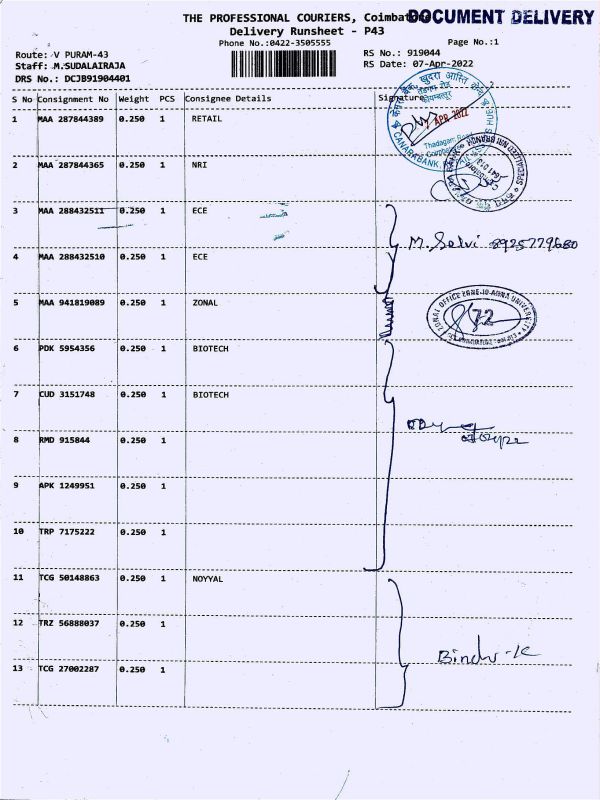 THE PROFESSIONAL COURIERS, Coimbatore
DOCUMENT DELIVERY
Delivery Runsheet - P43
Phone No.:0422-3505555
Page No.:1
Route: V PURAM-43
RS No.: 919044
Staff: M.SUDALAIRAJA
RS Date: 07-Apr-2022
DRS No.: DCJB91904401
S No Consignment No Weight PCS Consignee Details Signature
1 MAA 287844389 0.250 1 RETAIL
7 APR 2022
Thadagam Road
2 MAA 287844365 0.250 1 NRI
3 MAA 288432511 0.250 1 ECE
M. Selvi 8925779680
4 MAA 288432510 0.250 1 ECE
5 MAA 941819089 0.250 1 ZONAL
ZONAL OFFICE ZONE-10 ANNA UNIVERSITY
72
6 PDK 5954356 0.250 1 BIOTECH
7 CUD 3151748 0.250 1 BIOTECH
8 RMD 915844 0.250 1
9 APK 1249951 0.250 1
10 TRP 7175222 0.250 1
11 TCG 50148863 0.250 1 NOYYAL
12 TRZ 56888037 0.250 1
Bindu-K
13 TCG 27002287 0.250 1